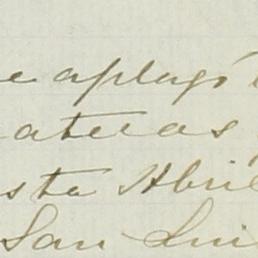 e aplazó
atecas,
sta Abril
San Luis